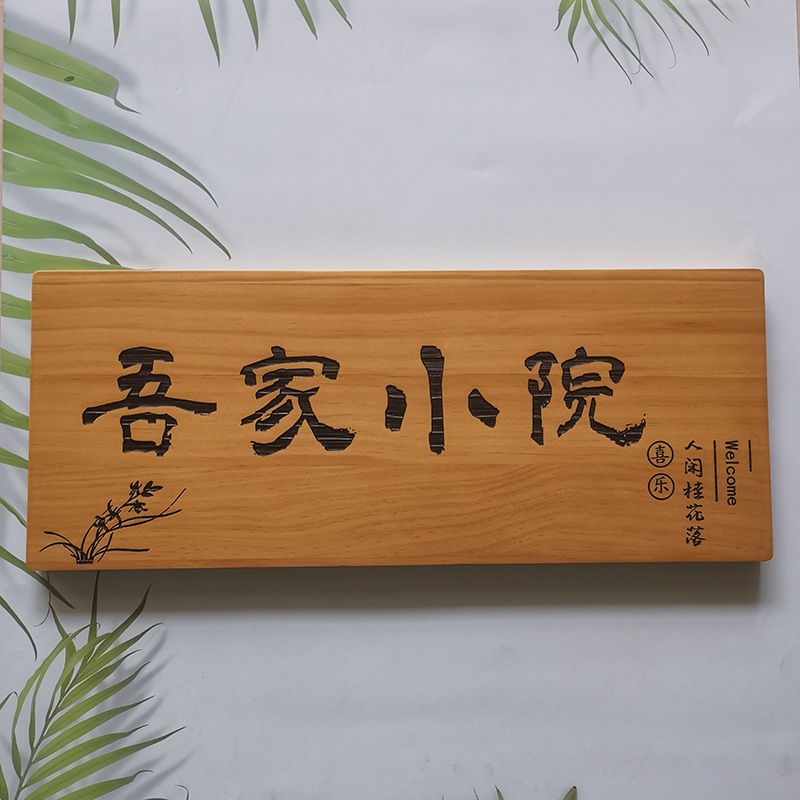 吾家小院
Welcome
人闲桂花落
喜乐